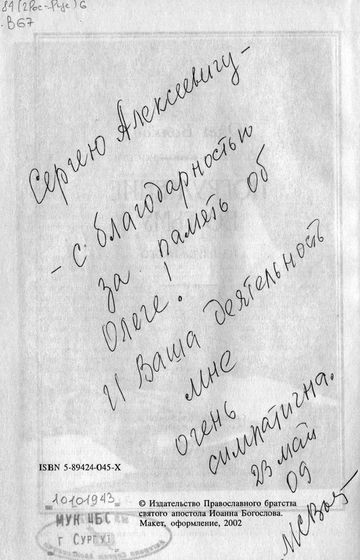 84(2Рос=Рус)6
В67
Сергею Алексеевичу -
- с благодарностью
за память об
Олеге!
И Ваша деятельность
мне
очень
симпатична.
23 май
09
ISBN 5-89424-045-X
10101943
© Издательство Православного братства
святого апостола Иоанна Богослова.
Макет, оформление, 2002
МУК ЦБС
г Сургут